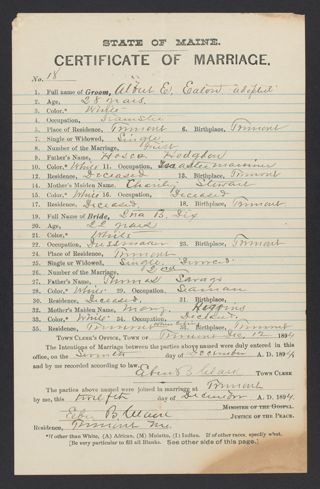 STATE OF MAINE.
CERTIFICATE OF MARRIAGE.
No. 18
1. Full name of Groom, Albert E. Eaton adopted
2. Age, 28 years
3. Color,* White
4. Occupation, Teamster
5. Place of Residence, Tremont 6. Birthplace, Tremont
7. Single or Widowed, Single
8. Number of the Marriage, First
9. Father's Name, Hodgdon
10. Color,* White 11. Occupation,
12. Residence, Deceased 13. Birthplace, Tremont
14. Mother's Maiden Name, Stewart
15. Color,* White 16. Occupation, Deceased
17. Residence, Deceased 18. Birthplace, Tremont
19. Full Name of Bride, B. Dix
20. Age, 22 years
21. Color,* White
22. Occupation, 23. Birthplace, Tremont
24. Place of Residence, Tremont
25. Single or Widowed, Single Divorced
26. Number of the Marriage, 2nd
27. Father's Name, Thomas Savage
28. Color,* White 29. Occupation, Seaman
30. Residence, Deceased 31. Birthplace,
32. Mother's Maiden Name, Mary Higgins
33. Color,* White 34. Occupation,
35. Residence, Tremont Birthplace, Tremont
TOWN CLERK'S OFFICE, TOWN OF Tremont Dec. 12 1894
The Intentions of Marriage between the parties above named were duly entered in this
office, on the day of December A. D. 1894
and by me recorded according to law.
Eben B. Clark TOWN CLERK
The parties above named were joined in marriage at Tremont
by me, this twelfth day of December A. D. 1894.
MINISTER OF THE GOSPEL.
Eben B. Clark JUSTICE OF THE PEACE.
Residence, Tremont Me.
*If other than White, (A) African, (M) Mulatto, (I) Indian. If of other races, specify what.
[Be very particular to fill all Blanks. See other side of this page.]